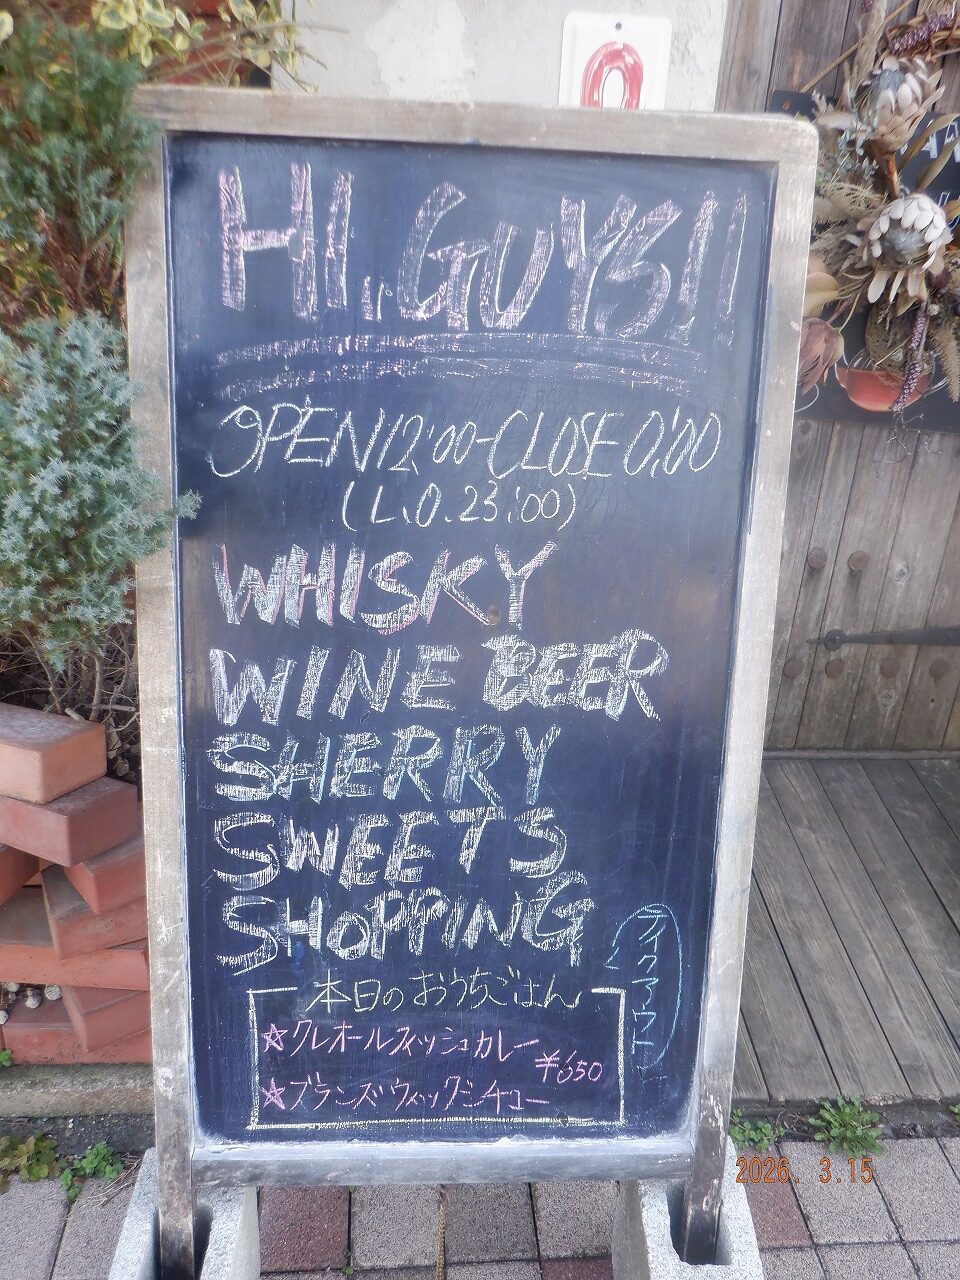 HI..GUYS!!
OPEN12:00-CLOSE 0:00
(L.O.23:00)
WHISKY
WINE BEER
SHERRY
SWEETS
SHOPPING
本日のおうちごはん
☆クレオールフィッシュカレー
¥650
☆ブランズウィックシチュー
テイクアウト
2026. 3.15